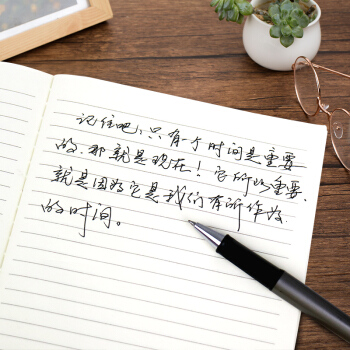 记住吧,只有一个时间是重要
的,那就是现在!它所以重要,
就是因为它是我们有所作为
的时间。